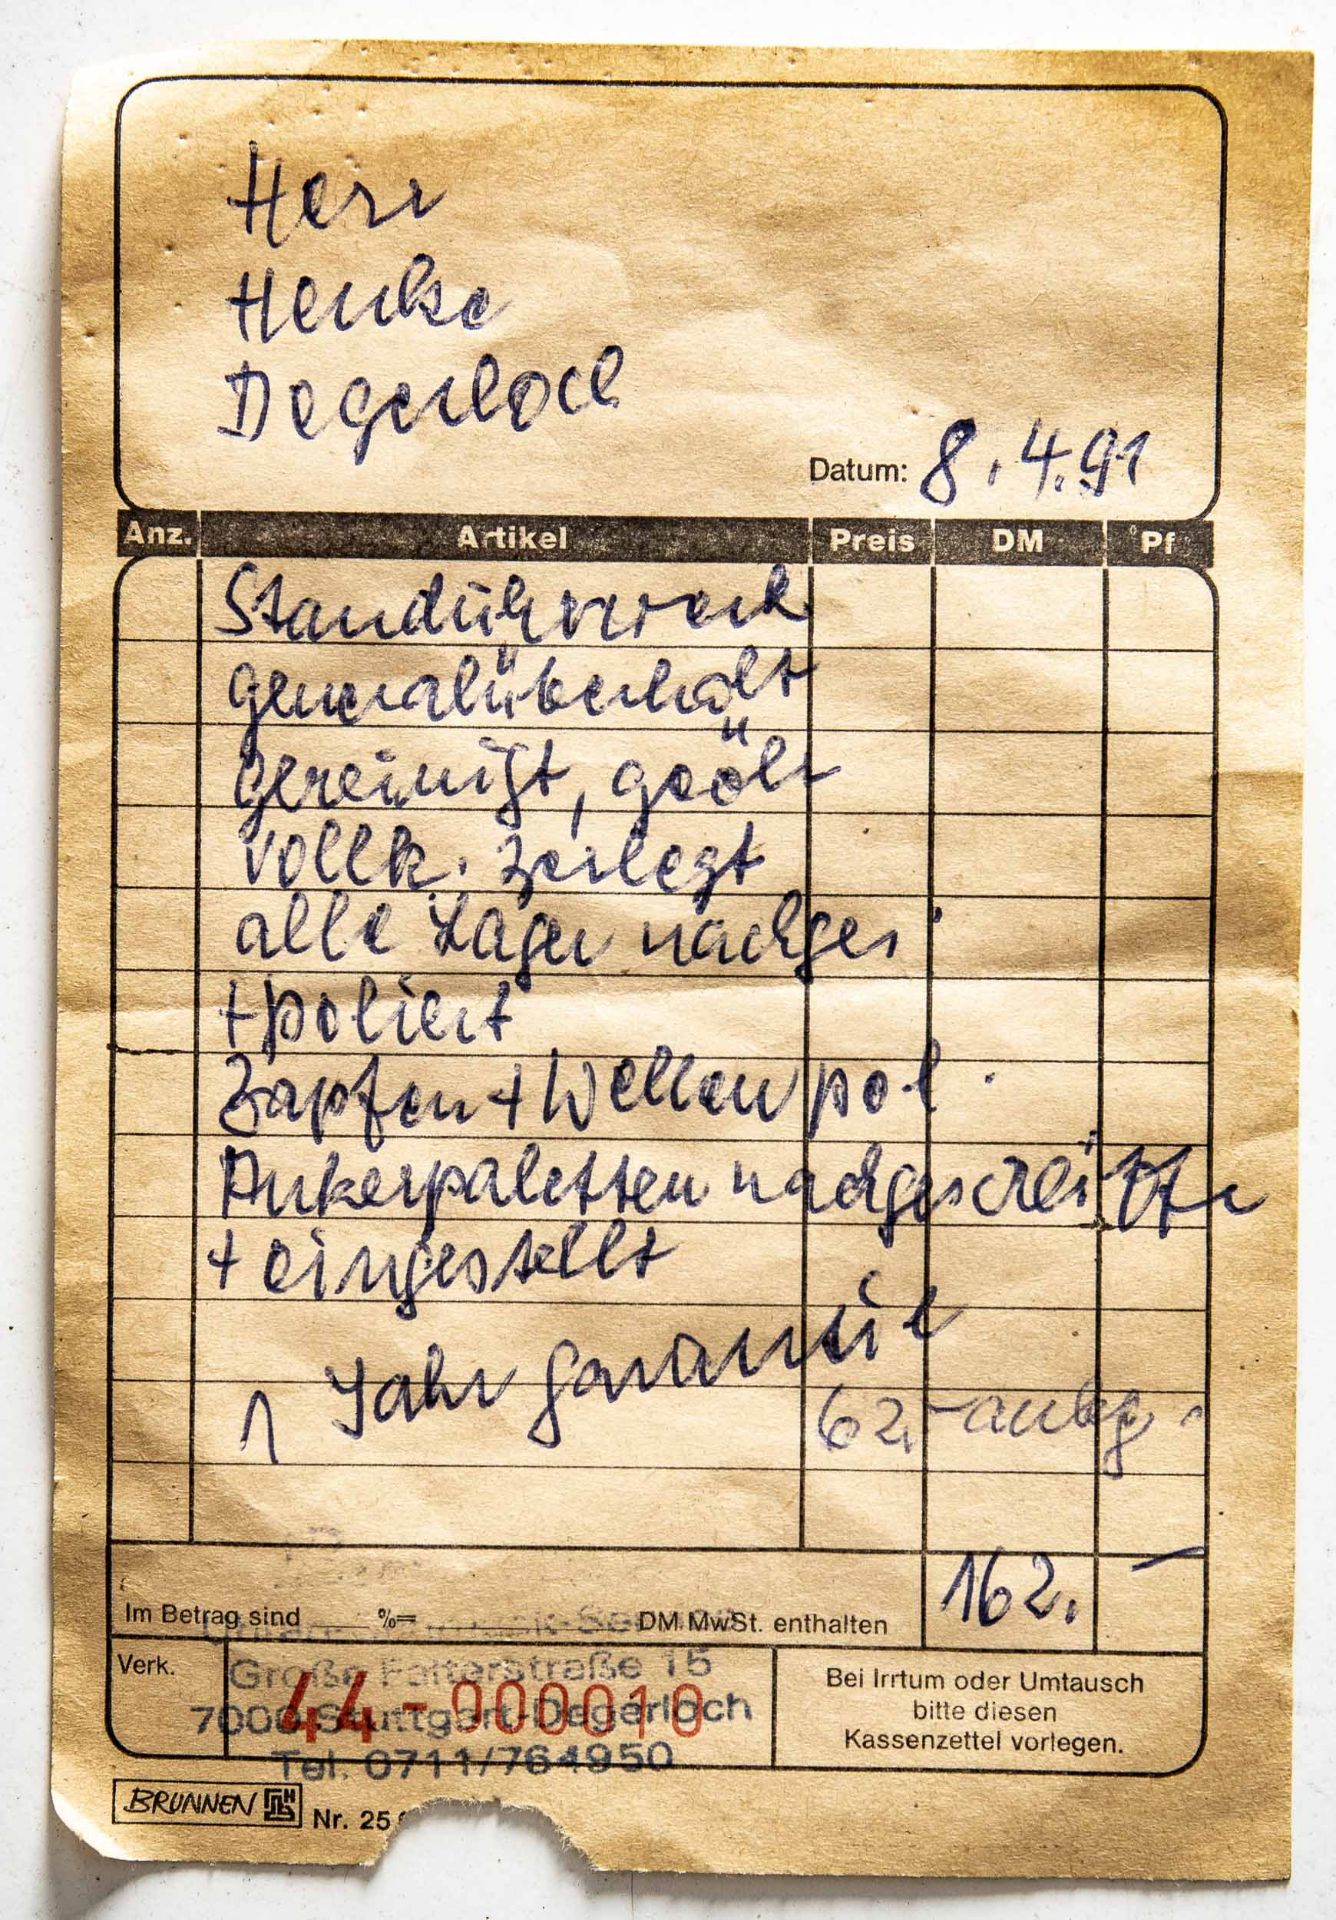 Herr
Henke
Degerloch
Datum: 8.4.91
Anz. Artikel Preis DM Pf
Standuhrwerk
generalüberholt
gereinigt, geölt
vollk. zerlegt
alle Lager nachges.
+ poliert
Zapfen + Wellen pol.
Ankerpaletten nachgeschliffen
+ eingestellt
1 Jahr Garantie
62,-
162.–
Im Betrag sind %= DM MwSt. enthalten
Verk.
Große Falterstraße 15
7000 Stuttgart-Degerloch
Tel. 0711/764950
44-000010
Bei Irrtum oder Umtausch
bitte diesen
Kassenzettel vorlegen.
BRUNNEN Nr. 25